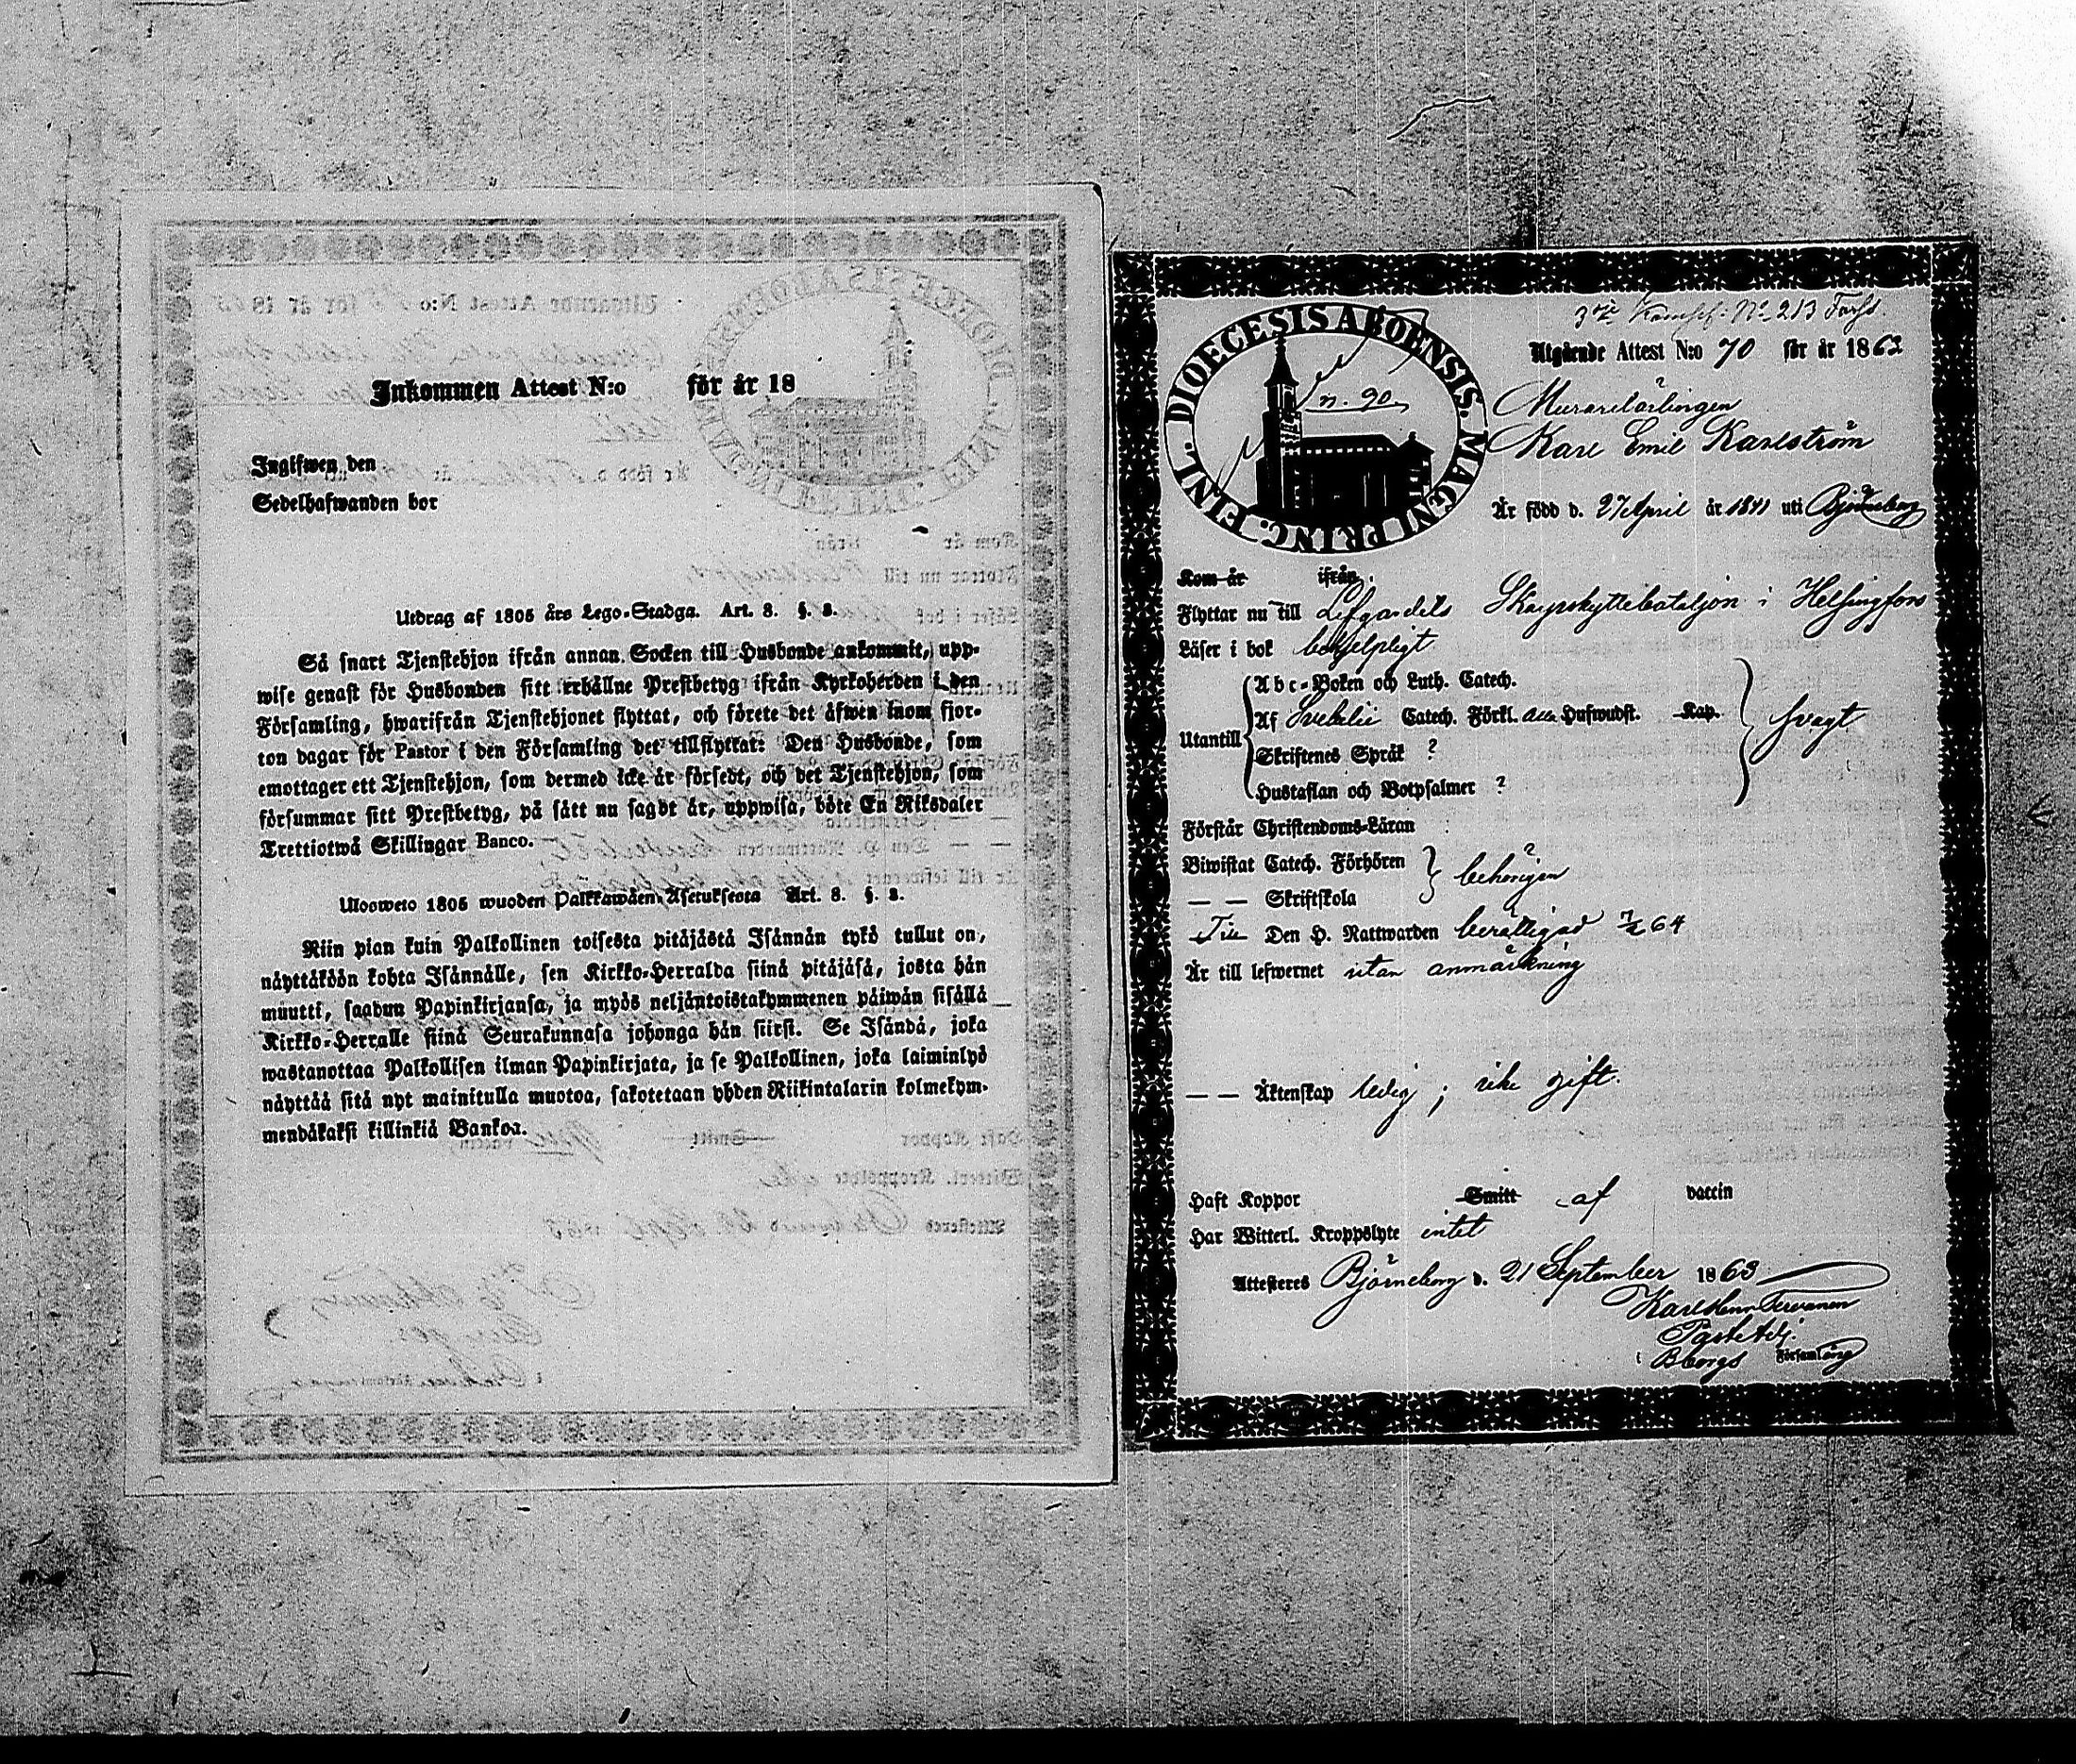 Inkommen Attest N:o för år 18
Ingifwen den
Sedelhafwanden bor
Utdrag af 1805 års Lego-Stadga. Art. 8. §. 8.
Så snart Tjenstehjon ifrån annan Socken till Husbonde ankommit, upp-
wise genast för Husbonden sitt erhållne Prestbetyg ifrån Kyrkoherden i den
Församling, hwarifrån Tjenstehjonet flyttat, och förete det äfwen inom fjor-
ton dagar för Pastor i den Församling det tillflyttat: Den Husbonde, som
emottager ett Tjenstehjon, som dermed icke är försedt, och det Tjenstehjon, som
försummar sitt Prestbetyg, på sätt nu sagdt är, uppwisa, böte En Riksdaler
Trettiotwå Skillingar Banco.
Ulosweto 1805 wuoden Palkkawäen Asetuksesta Art. 8. §. 8.
Niin pian kuin Palkollinen toisesta pitäjästä Isännän tykö tullut on,
näyttäköön kohta Isännälle, sen Kirkko-Herralda siinä pitäjäsä, josta hän
muutti, saadun Papinkirjansa, ja myös neljäntoistakymmenen päiwän sisällä
Kirkko-Herralle siinä Seurakunnasa johonga hän siirsi. Se Isändä, joka
wastanottaa Palkollisen ilman Papinkirjata, ja se Palkollinen, joka laiminlyö
näyttää sitä nyt mainitulla muotoa, sakotetaan yhden Riikintalarin kolmekym-
mendäkaksi killinkiä Bankoa.
DIOECESIS ABOENSIS. MAGNI PRINC. FINL.
n. 90.
3die Kompf: No 213 Forss.
Utgående Attest N:o 70 för år 1863
Murarelärlingen
Karl Emil Karlström
Är född d. 27 April år 1841 uti Björneborg
Kom år ifrån
Flyttar nu till Lifgardets Skarpskyttebataljon i Helsingfors
Läser i bok behjelpligt
Utantill
Abc-Boken och Luth. Catech.
Af Svebelii Catech. Förkl. alla Hufwudst. Kap.
Skriftenes Språk ?
Hustaflan och Botpsalmer ?
svagt
Förstår Christendoms-Läran
Biwistat Catech. Förhören
— — Skriftskola
behörigen
Till Den H. Nattwarden berättigad 7/2 64
Är till lefwernet utan anmärkning
— — Äktenskap ledig; icke gift.
Haft Koppor Smitt af vaccin
Har Witterl. Kroppslyte intet
Attesteres Björneborg d. 21 September 1863
Karl Henr Tervanen
Past. Adj.
i Bborgs Församling